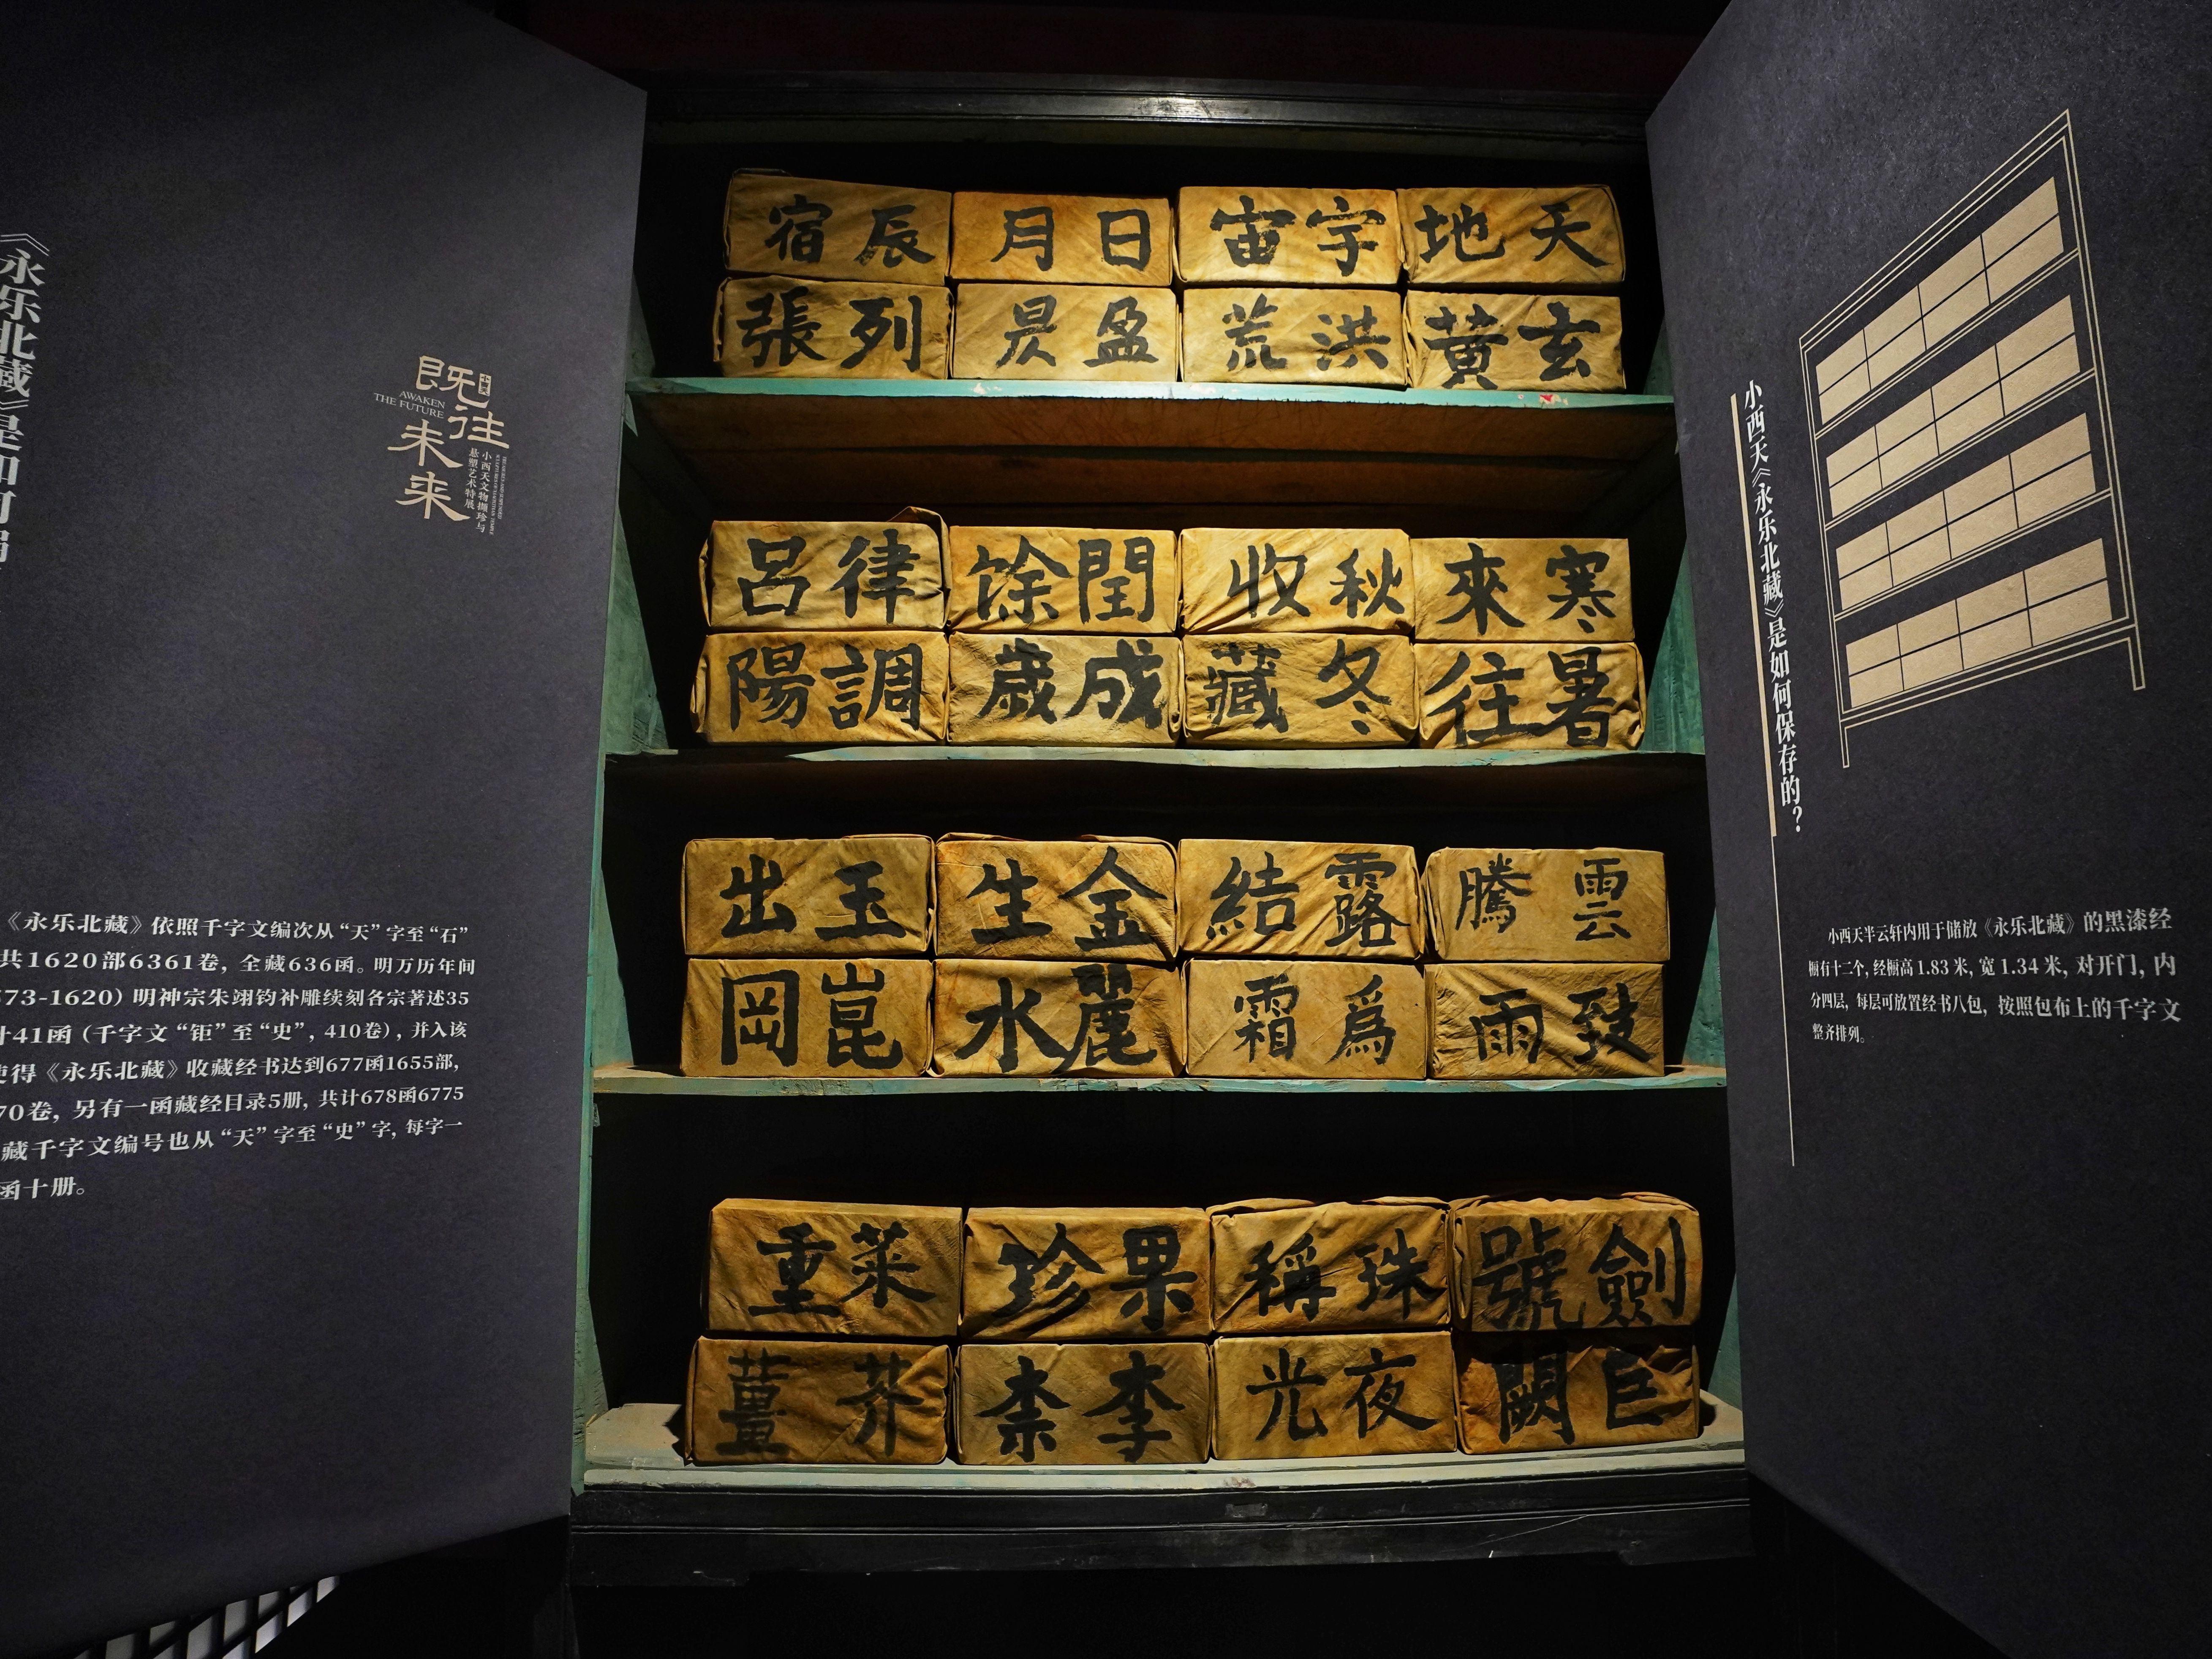 《永乐北藏》是如何
既往
未来
AWAKEN
THE FUTURE
小西天文物撷珍与
悬塑艺术特展
《永乐北藏》依照千字文编次从“天”字至“石”
共1620部6361卷，全藏636函。明万历年间
73-1620）明神宗朱翊钧补雕续刻各宗著述35
计41函（千字文“钜”至“史”，410卷），并入该
使得《永乐北藏》收藏经书达到677函1655部，
70卷，另有一函藏经目录5册，共计678函6775
藏千字文编号也从“天”字至“史”字，每字一
函十册。
天地
宇宙
日月
辰宿
玄黄
洪荒
盈昃
列張
寒來
秋收
閏馀
律吕
暑往
冬藏
成歲
調陽
雲騰
露結
金生
玉出
致雨
爲霜
麗水
崑岡
劍號
珠稱
果珍
菜重
巨闕
夜光
李柰
芥薑
小西天《永乐北藏》是如何保存的？
小西天半云轩内用于储放《永乐北藏》的黑漆经
橱有十二个，经橱高1.83米，宽1.34米，对开门，内
分四层，每层可放置经书八包，按照包布上的千字文
整齐排列。